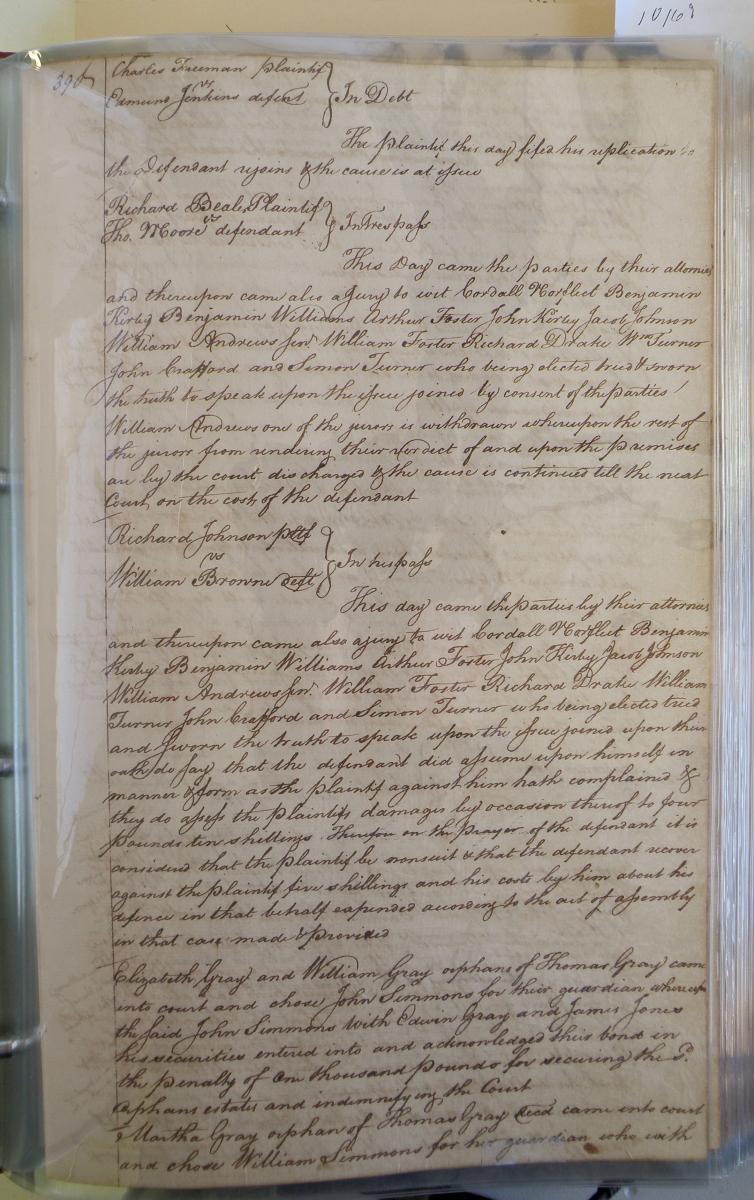 10/68
396
Charles Freeman plaintif
vs
Edmund Jenkins defent } In Debt
The plaintif this day filed his replication to
the Defendant rejoins & the cause is at issue
Richard Beale Plaintif
vs
Tho. Moore defendant } In Trespass
This Day came the parties by their attornies
and thereupon came also a Jury to wit Cordall Norfleet Benjamin
Kirby Benjamin Williams Arthur Foster John Kirby Jacob Johnson
William Andrews Senr William Foster Richard Drake Wm Turner
John Crafford and Simon Turner who being elected tried & sworn
the truth to speak upon the issue joined by consent of the parties
William Andrews one of the jurors is withdrawn whereupon the rest of
the jurors from rendering their verdict of and upon the premises
are by the court discharged & the cause is continued till the next
Court on the costs of the defendant
Richard Johnson pltf
vs
William Browne deft } In trespass
This day came the parties by their attornies
and thereupon came also a jury to wit Cordall Norfleet Benjamin
Kirby Benjamin Williams Arthur Foster John Kirby Jacob Johnson
William Andrews Senr. William Foster Richard Drake William
Turner John Crafford and Simon Turner who being elected tried
and sworn the truth to speak upon the issue joined upon their
oath do say that the defendant did assume upon himself in
manner & form as the plaintif against him hath complained &
they do assess the plaintifs damages by occasion thereof to four
pounds ten shillings Therefore on the prayer of the defendant it is
considered that the plaintif be nonsuit & that the defendant recover
against the plaintif five shillings and his costs by him about his
defence in that behalf expended according to the act of assembly
in that case made & provided
Elizabeth Gray and William Gray orphans of Thomas Gray came
into court and chose John Simmons for their guardian whereupon
the said John Simmons with Edwin Gray and James Jones
his securities entered into and acknowledged their bond in
the penalty of One thousand pounds for securing the sd.
orphans estates and indemnifying the Court
Martha Gray orphan of Thomas Gray decd came into court
and chose William Simmons for her guardian who with